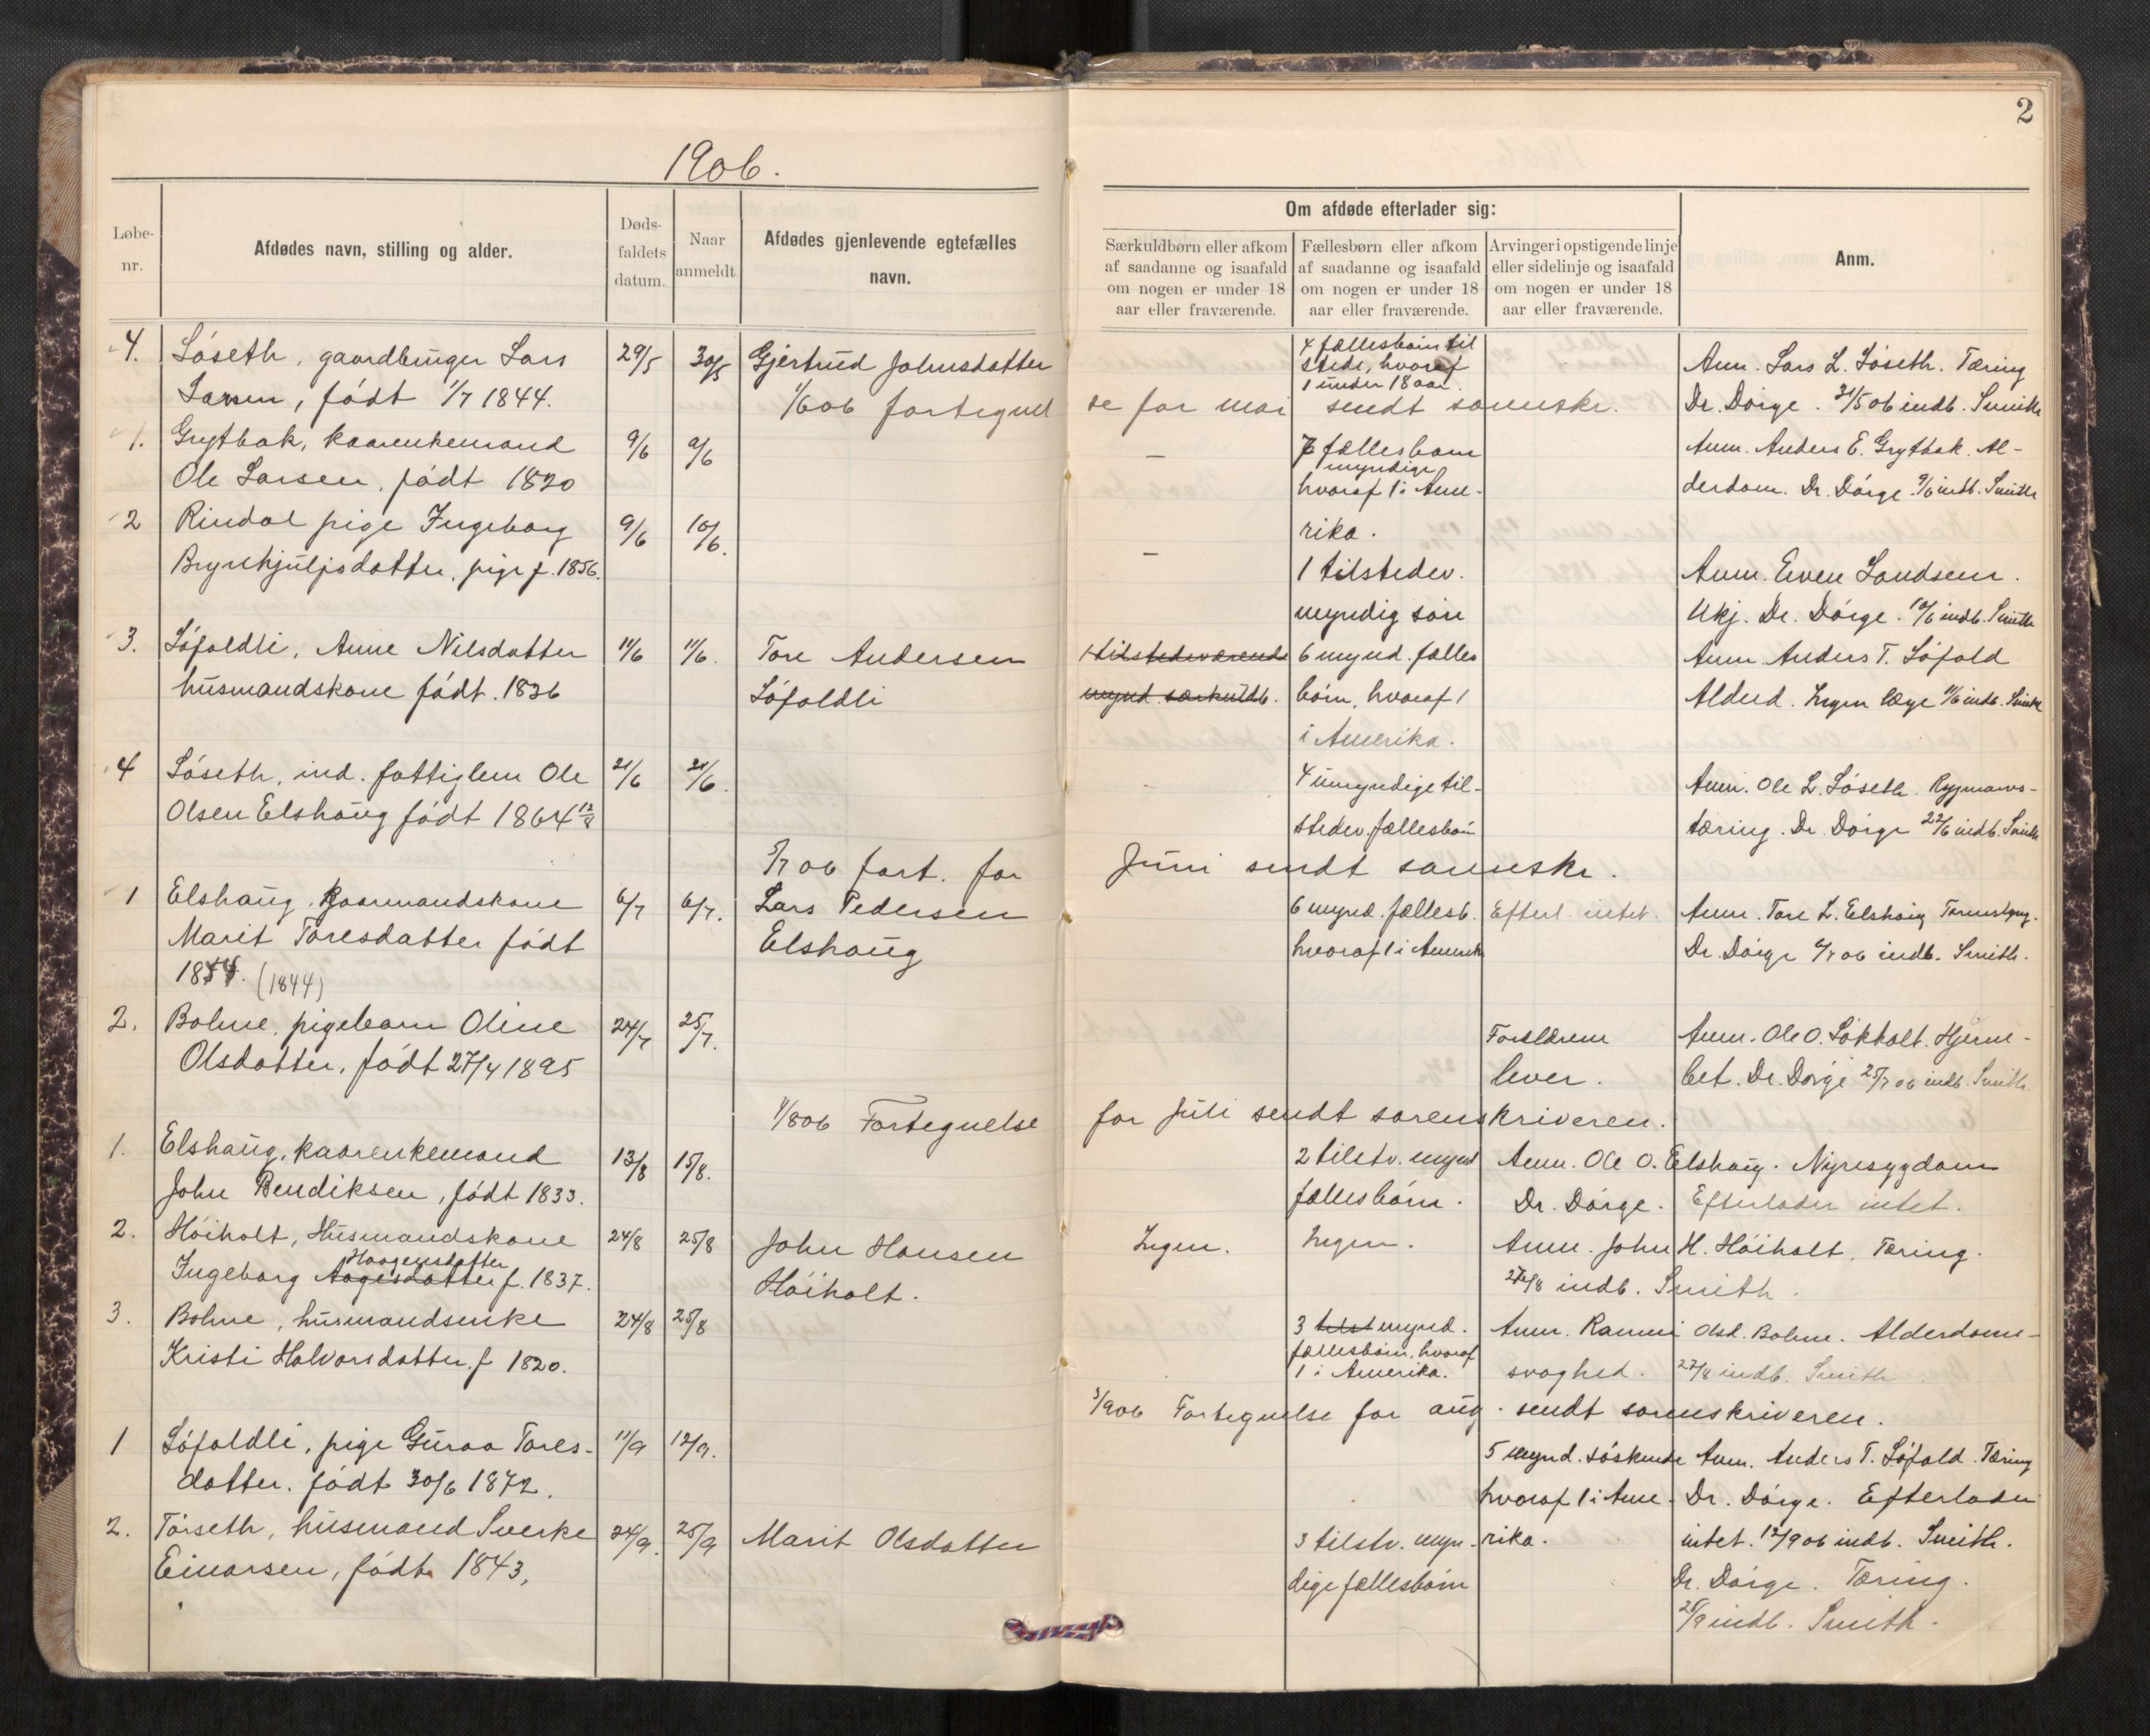 2
1906.
Løbe-
nr.
Afdødes navn, stilling og alder.
Døds-
faldets
datum.
Naar
anmeldt
Afdødes gjenlevende egtefælles
navn.
Om afdøde efterlader sig:
Særkuldbørn eller afkom
af saadanne og isaafald
om nogen er under 18
aar eller fraværende.
Fællesbørn eller afkom
af saadanne og isaafald
om nogen er under 18
aar eller fraværende.
Arvinger i opstigende linje
eller sidelinje og isaafald
om nogen er under 18
aar eller fraværende.
Anm.
4. Løseth, gaardbruger Lars
Larsen, født 1/7 1844.
29/5 30/5 Gjertrud Johnsdatter
4 fællesbørn til
stede, hvoraf
1 under 18 aar.
Anm. Lars L. Løseth. Tæring
Dr. Dørge. 31/5 06 indb. Smith
1/6 06 fortegnel se for mai sendt sorenskr.
1. Grytbak, kaarenkemand
Ole Larsen, født 1820
9/6 9/6
–
7 fællesbarn
myndige
hvoraf 1 i Ame-
rika.
Anm. Anders E. Grytbak. Al-
derdom. Dr. Dørge. 9/6 indb. Smith
2 Rindal pige Ingeborg
Brynhjulfsdatter, pige f. 1856.
9/6 10/6.
–
1 tilstedev.
myndig søn
Anm. Even Landsem.
Ukj. Dr. Dørge. 10/6 indb. Smith
3. Løfaldli, Anne Nilsdatter
husmandskone født. 1836
11/6 11/6. Tore Andersen
Løfaldli
1 tilstedeværende
mynd. særkuldb.
6 mynd. fælles
børn, hvoraf 1
i Amerika.
Anm Anders T. Løfald
Alderd. Ingen læge 11/6 indb. Smith
4 Løseth, ind. fattiglem Ole
Olsen Elshaug født 1864 12/8
21/6 21/6.
4 umyndige til-
stedev. fællesbørn
Anm. Ole L. Løseth. Rygmarvs-
tæring. Dr. Dørge 22/6 indb. Smith
5/7 06 fort. for Juni sendt sorenskr.
1 Elshaug, Kaarmandskone
Marit Toresdatter født
1844. (1844)
6/7 6/7. Lars Pedersen
Elshaug
6 mynd. fællesb.
hvoraf 1 i Amerik
Efterl. intet.
Anm. Tore L. Elshaug
Dr. Dørge 6/7 06 indb. Smith.
2. Bolme, pigebarn Oline
Olsdatter, født 27/4 1895
24/7 25/7.
Forældrene
lever.
Anm. Ole O. Løkholt. Hjerne-
bet. Dr. Dørge 25/7 06 indb. Smith.
1/8 06 Fortegnelse for Juli sendt sorenskriveren.
1. Elshaug, kaarenkemand
John Bendiksen, født 1833.
13/8 15/8.
2 tilstv. mynd
fællesbørn.
Anm. Ole O. Elshaug. Nyresygdom
Dr. Dørge. Efterlader intet.
2. Høiholt, Husmandskone
Haagensdatter
Ingeborg Aagesdatter f. 1837.
24/8 25/8 John Hansen
Høiholt.
Ingen. Ingen.
Anm. John H. Høiholt. Tæring.
27/8 indb. Smith.
3. Bolme, husmandsenke
Kristi Halvorsdatter f 1820.
24/8 25/8
3 tilst mynd.
fællesbørn, hvoraf
1 i Amerika.
Anm. Ranni Olsd. Bolme. Alderdoms-
svaghed. 27/8 indb. Smith.
3/9 06 Fortegnelse for aug. sendt sorenskriveren.
1 Løfaldli, pige Guroa Tores-
datter. født 30/6 1872.
11/9 12/9.
5 mynd. søskende
hvoraf 1 i Ame-
rika.
Anm. Anders T. Løfald. Tæring
Dr. Dørge. Efterlader
intet. 12/9 06 indb. Smith.
2. Tørseth, husmand Sverke
Einarsen, født 1843,
24/9. 25/9 Marit Olsdatter
3 tilstv. myn-
dige fællesbørn
Dr. Dørge. Tæring.
25/9 indb. Smith.